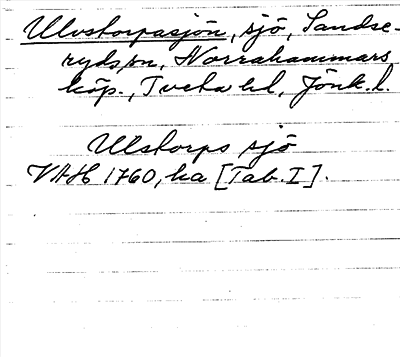 Ulvstorpasjön, sjö, Sandse-
rydssn, Norrahammars
köp., Tveta hd, Jönk. l.
Ulstorps sjö
VAH 1760, ka [Tab. I].